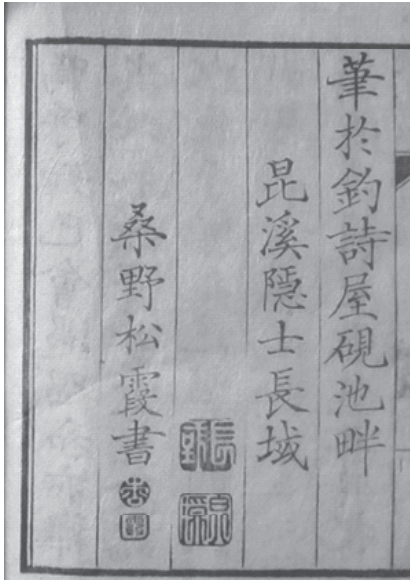 筆於釣詩屋硯池畔
昆溪隱士長域
桑野松霞書